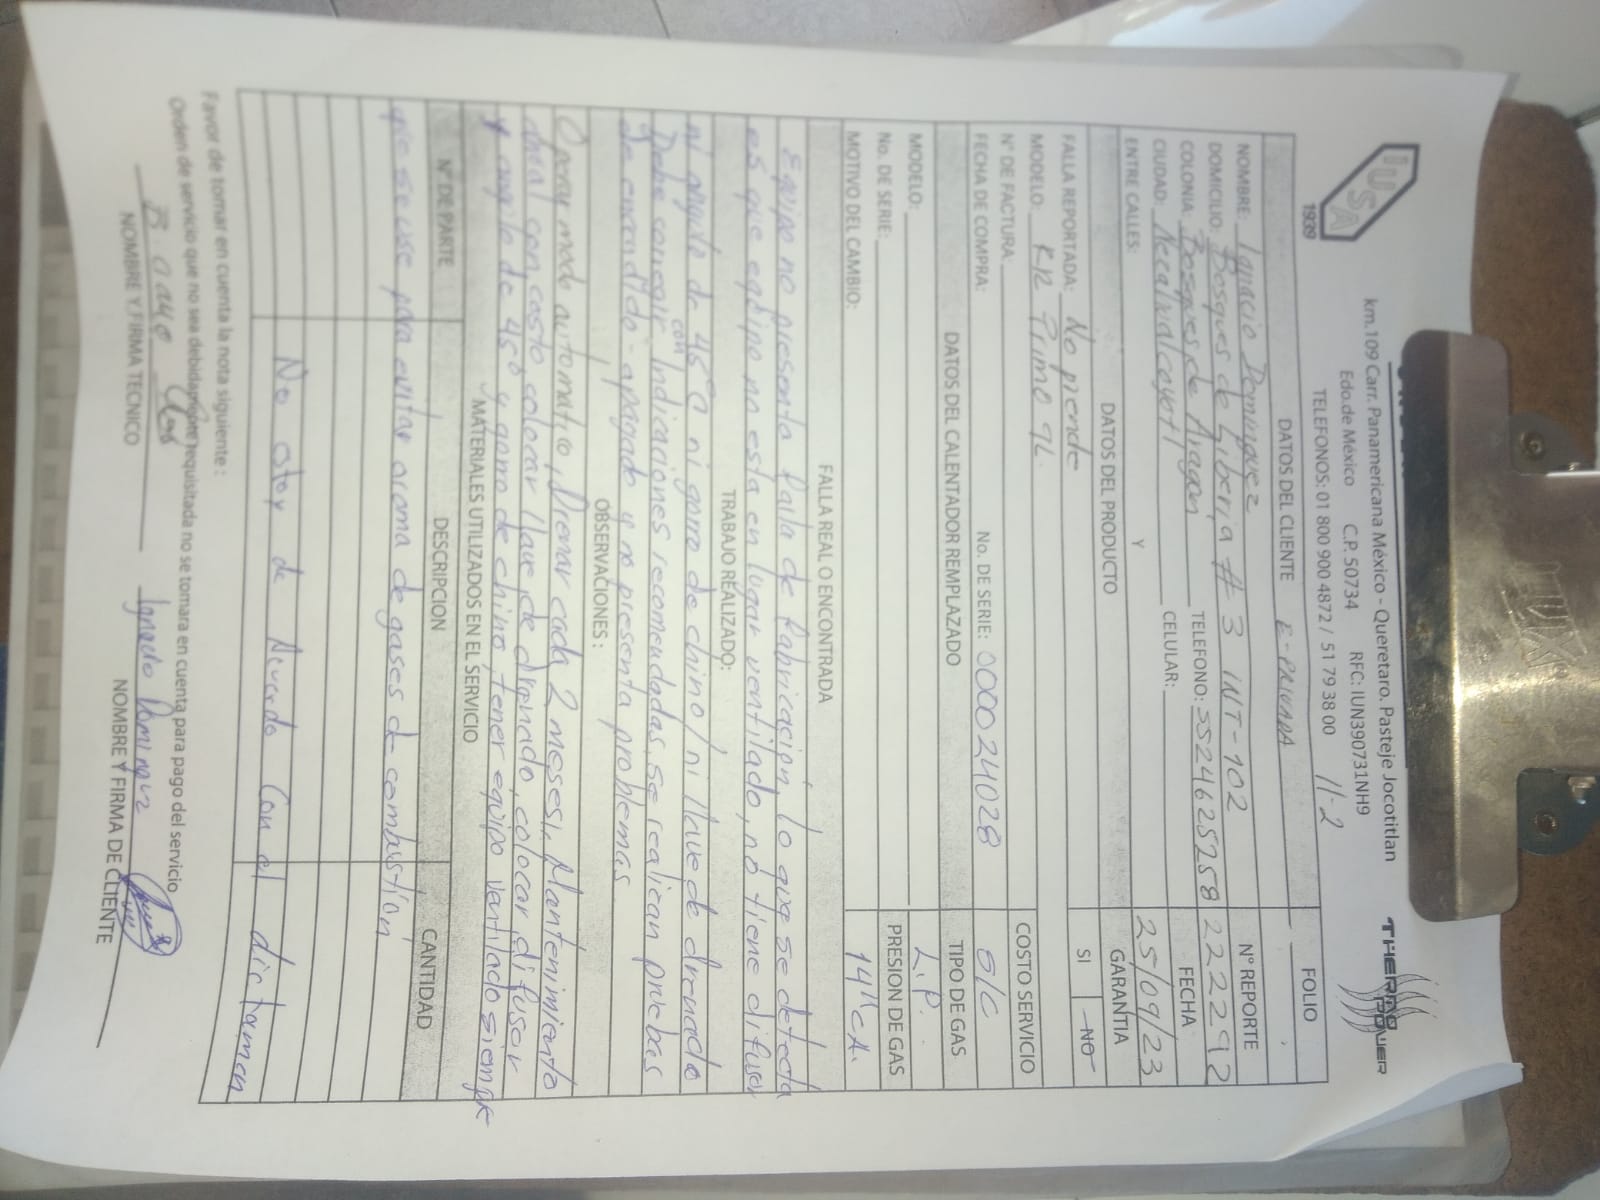 IUSA
1939
km.109 Carr. Panamericana México - Queretaro. Pasteje Jocotitlan
Edo.de México C.P. 50734 RFC: IUN390731NH9
TELEFONOS: 01 800 900 4872 / 51 79 38 00
THERMO POWER
11-2
FOLIO
DATOS DEL CLIENTE E-PRIVADA
NOMBRE: Ignacio Dominguez
N° REPORTE
2222292
DOMICILIO: Bosques de Liberia # 3 INT-102
COLONIA: Bosques de Aragon TELEFONO: 5524625258
FECHA
25/09/23
CIUDAD: Nezahualcoyotl CELULAR:
ENTRE CALLES: Y
GARANTIA
SI NO
DATOS DEL PRODUCTO
FALLA REPORTADA: No prende
MODELO: K12 Primo 9L
COSTO SERVICIO
S/C
N° DE FACTURA:
FECHA DE COMPRA: No. DE SERIE: 000024028
TIPO DE GAS
L.P.
DATOS DEL CALENTADOR REMPLAZADO
MODELO:
No. DE SERIE:
PRESION DE GAS
14"C.A.
MOTIVO DEL CAMBIO:
FALLA REAL O ENCONTRADA
Equipo no presenta falla de fabricación, lo que se detecta
es que equipo no esta en lugar ventilado, no tiene difusor
TRABAJO REALIZADO:
ni angulo de 45°C ni gorro de chino / ni llave de drenado
Debe corregir con Indicaciones recomendadas, se realizan pruebas
de encendido - apagado y no presenta problemas
OBSERVACIONES:
Opera modo automatico, Drenar cada 2 meses, Mantenimiento
anual con costo, colocar llave de drenado, colocar difusor
y angulo de 45° y gorro de chino, tener equipo ventilado siempre
MATERIALES UTILIZADOS EN EL SERVICIO
N° DE PARTE DESCRIPCION CANTIDAD
que se use para evitar aroma de gases de combustión
No estoy de Acuerdo Con el dictamen
Favor de tomar en cuenta la nota siguiente :
Orden de servicio que no sea debidamente requisitada no se tomara en cuenta para pago del servicio
Ignacio Dominguez
NOMBRE Y FIRMA TECNICO
NOMBRE Y FIRMA DE CLIENTE